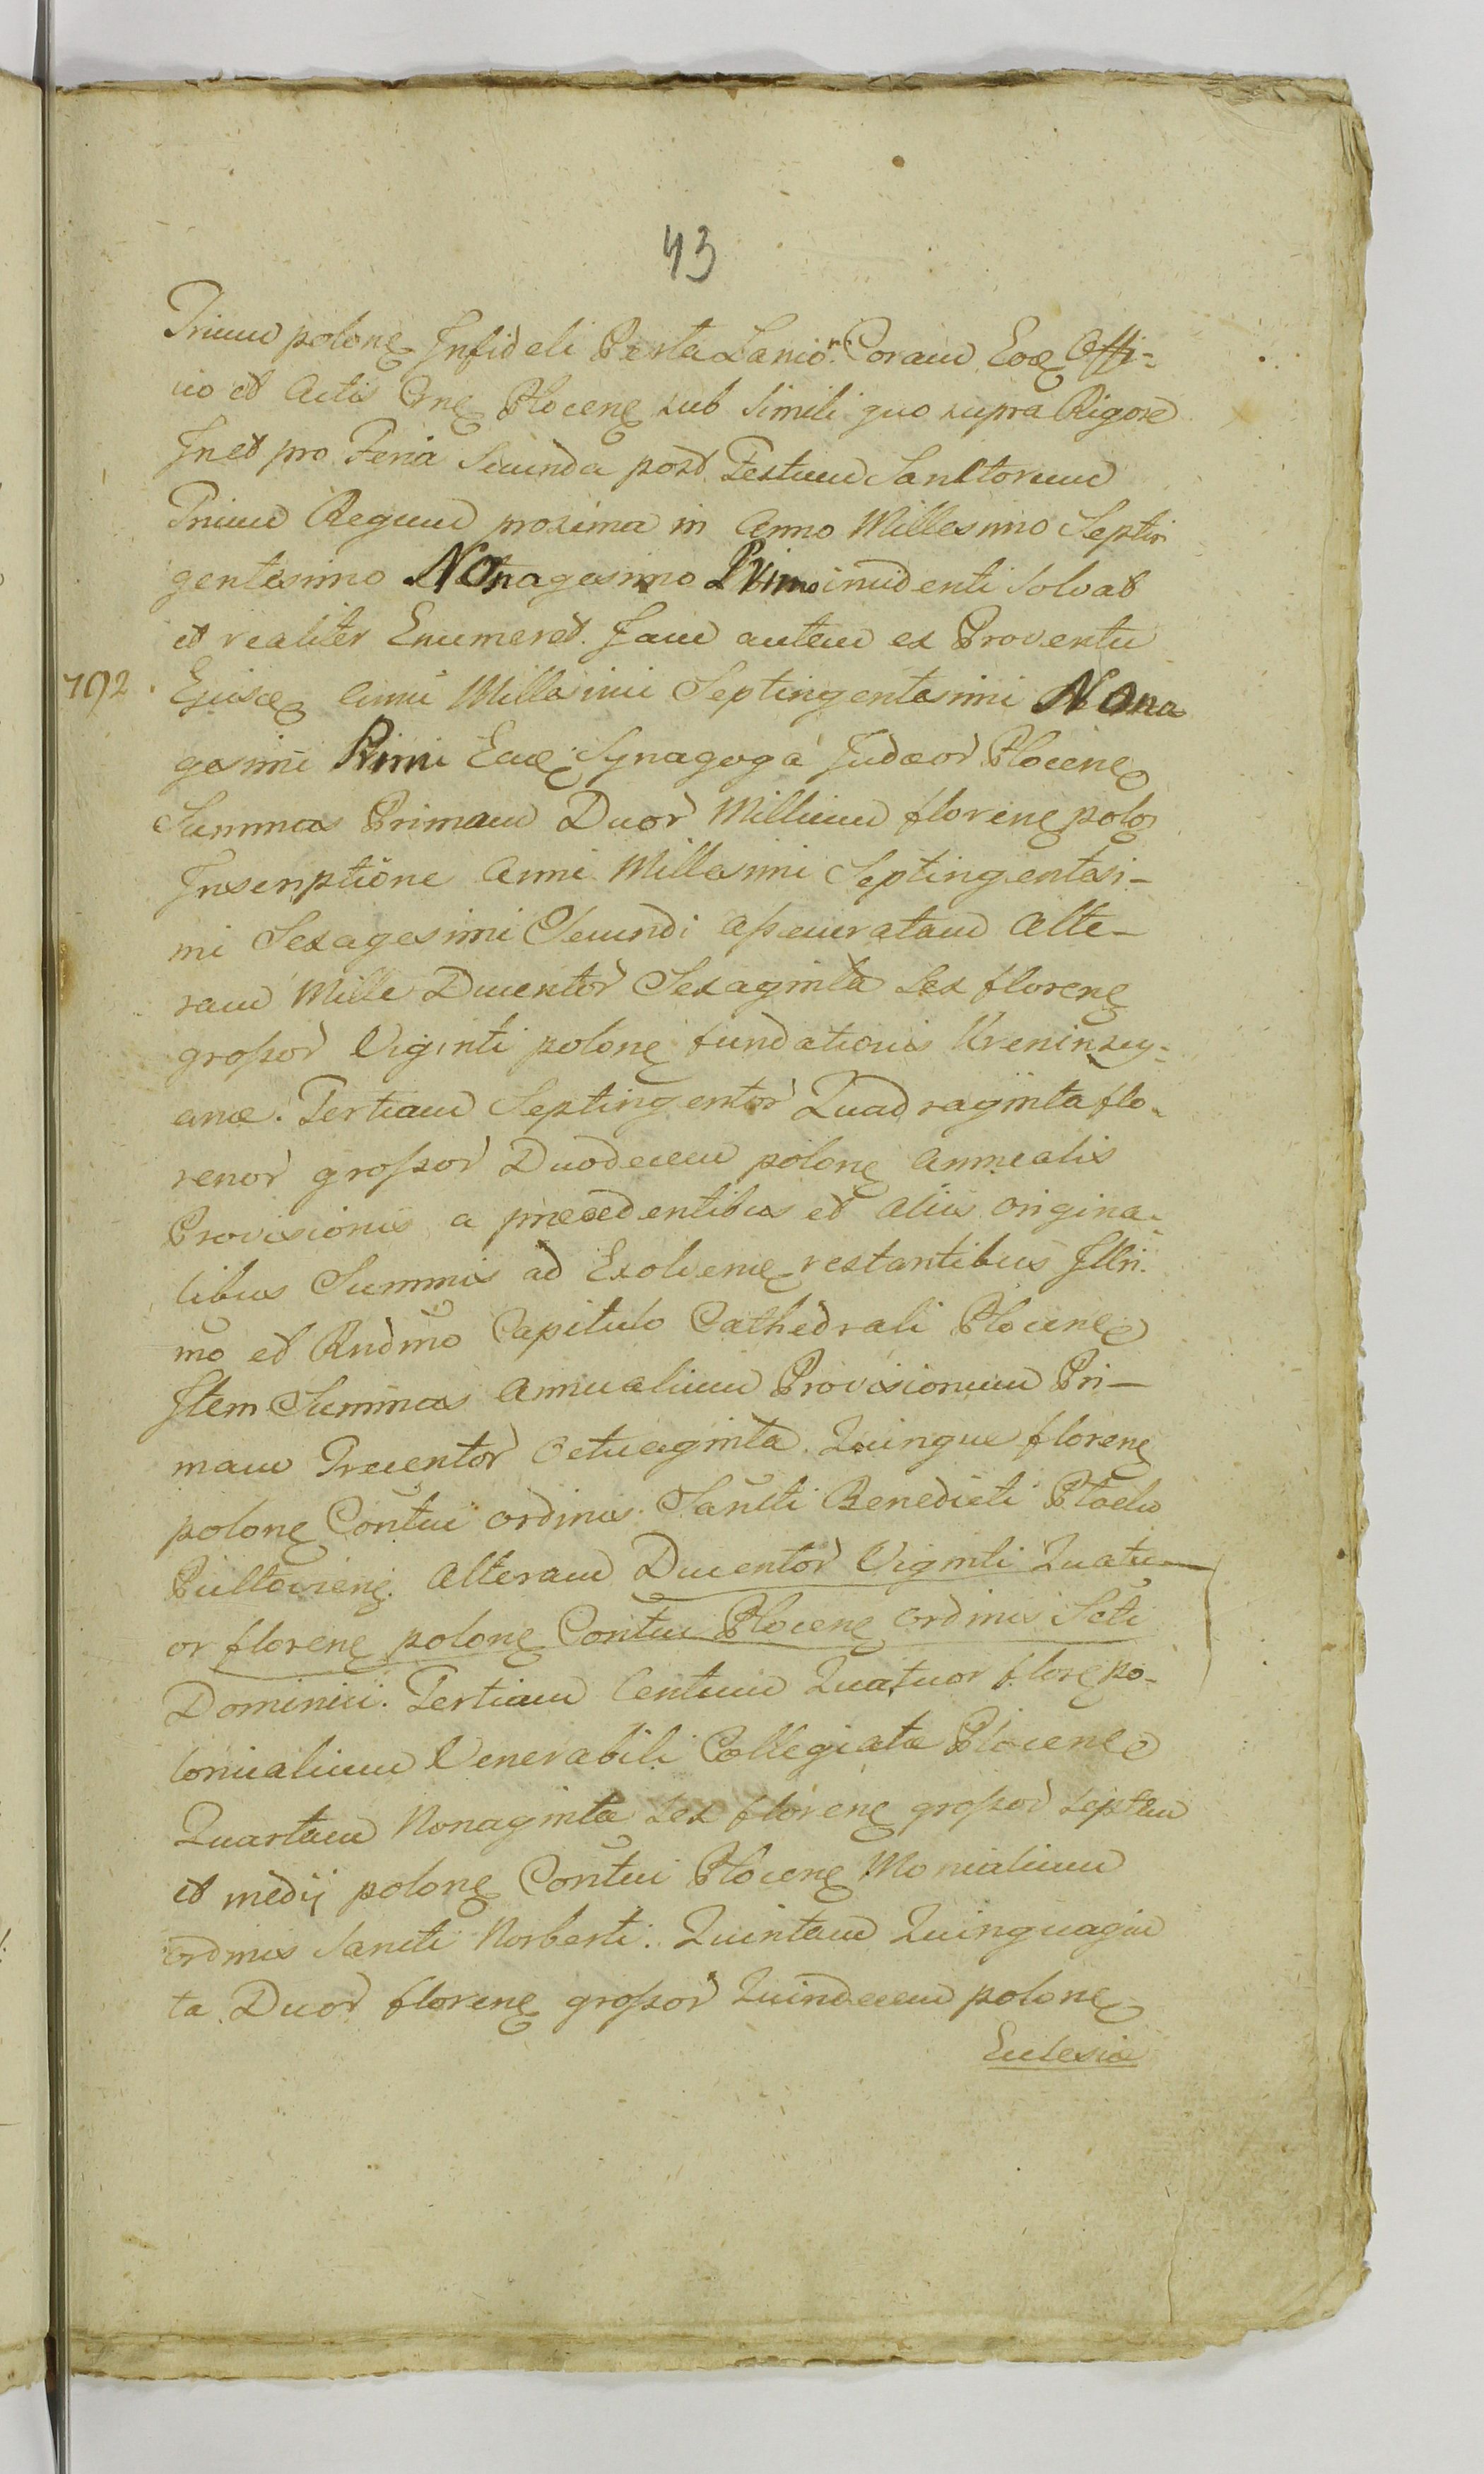 43
Trium polonę Infideli Perla Lanior. Coram Eoq Offi-
cio et Actis Crnę Plocenę sub Simili quo supra Rigore
In et pro Feria Secunda post Festum Sanctorum
Trium Regum proxima in Anno Millesimo Septin
gentesimo Nonagesimo Primo incidenti solvat
et realiter Enumeret. Jam autem ex Proventu
792. Ejusdę anni Millesimi Septingentesimi Nona
gesimi Primi Eadę Synagoga Judæor Plocenę
Summas Primam Duor Millium florenę polo
Inscriptione Anni Millesimi Septingentesi-
mi Sexagesimi Secundi assecuratam Alte-
ram Mille Ducentor Sexaginta Sex florenę
grossor Viginti polonę fundationis Kreninscy-
anæ. Tertiam Septingentor Quadraginta flo-
renor grossor Duodecem polonę annualis
Provisionis a præcedentibus et aliis origina-
libus Summis ad Exolvenę restantibus Illri
mo et Rndmo Capitulo Cathedrali Plocenę
Item Summas Annualium Provisionum Pri-
mam Trecentor Octuaginta Quinque florenę
polonę Contui ordinis Sancti Benedicti Ptoclo
Pultovienę. Alteram Ducentor Viginti Quatu-
or florenę polonę Contui Plocenę ordinis Scti
Dominici. Tertiam Centum Quatuor flore po-
lonicalium Venerabili Collegiatæ Plocenę
Quartam Nonaginta Sex florenę grossor septem
et medij polonę Contui Plocenę Monialium
ordinis Sancti Norberti. Quintam Quinquagin
ta Duor florenę grossor Quindecem polonę
Ecclesiæ